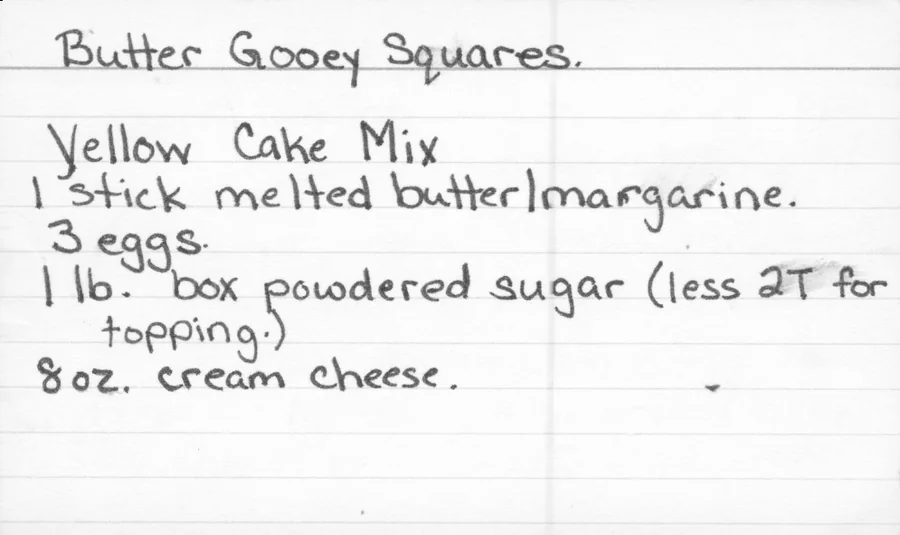 Butter Gooey Squares.
Yellow Cake Mix
1 stick melted butter/margarine.
3 eggs.
1 lb. box powdered sugar (less 2T for
topping.)
8 oz. cream cheese.